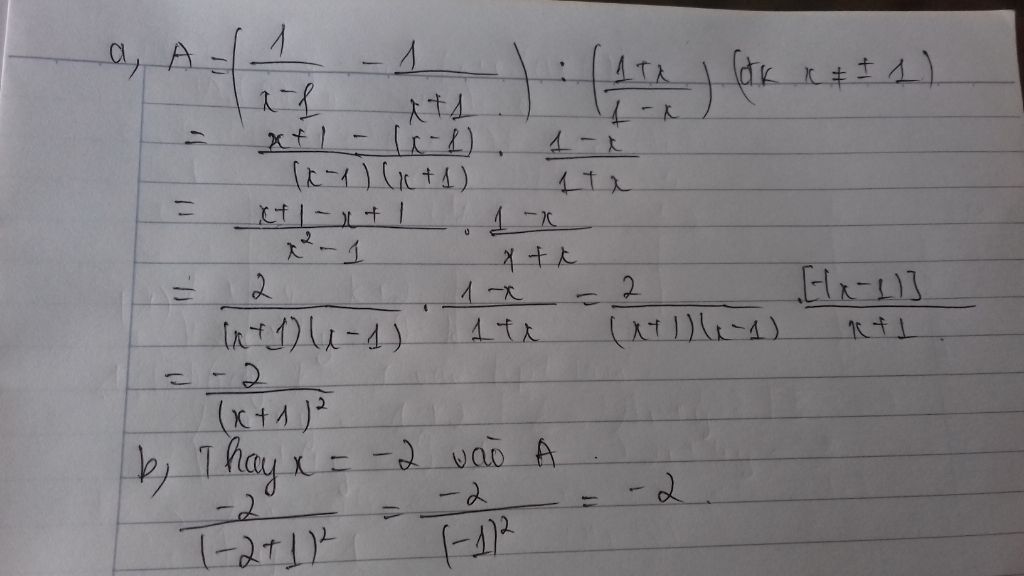 a, A = (1/(x-1) - 1/(x+1)) : ((1+x)/(1-x)) (đk x ≠ ± 1)
= (x+1 - (x-1))/((x-1)(x+1)) . (1-x)/(1+x)
= (x+1-x+1)/(x²-1) . (1-x)/(x+x)
= 2/((x+1)(x-1)) . (1-x)/(1+x) = 2/((x+1)(x-1)) . [-(x-1)]/(x+1)
= -2/(x+1)²
b, Thay x = -2 vào A.
-2/(-2+1)² = -2/(-1)² = -2.